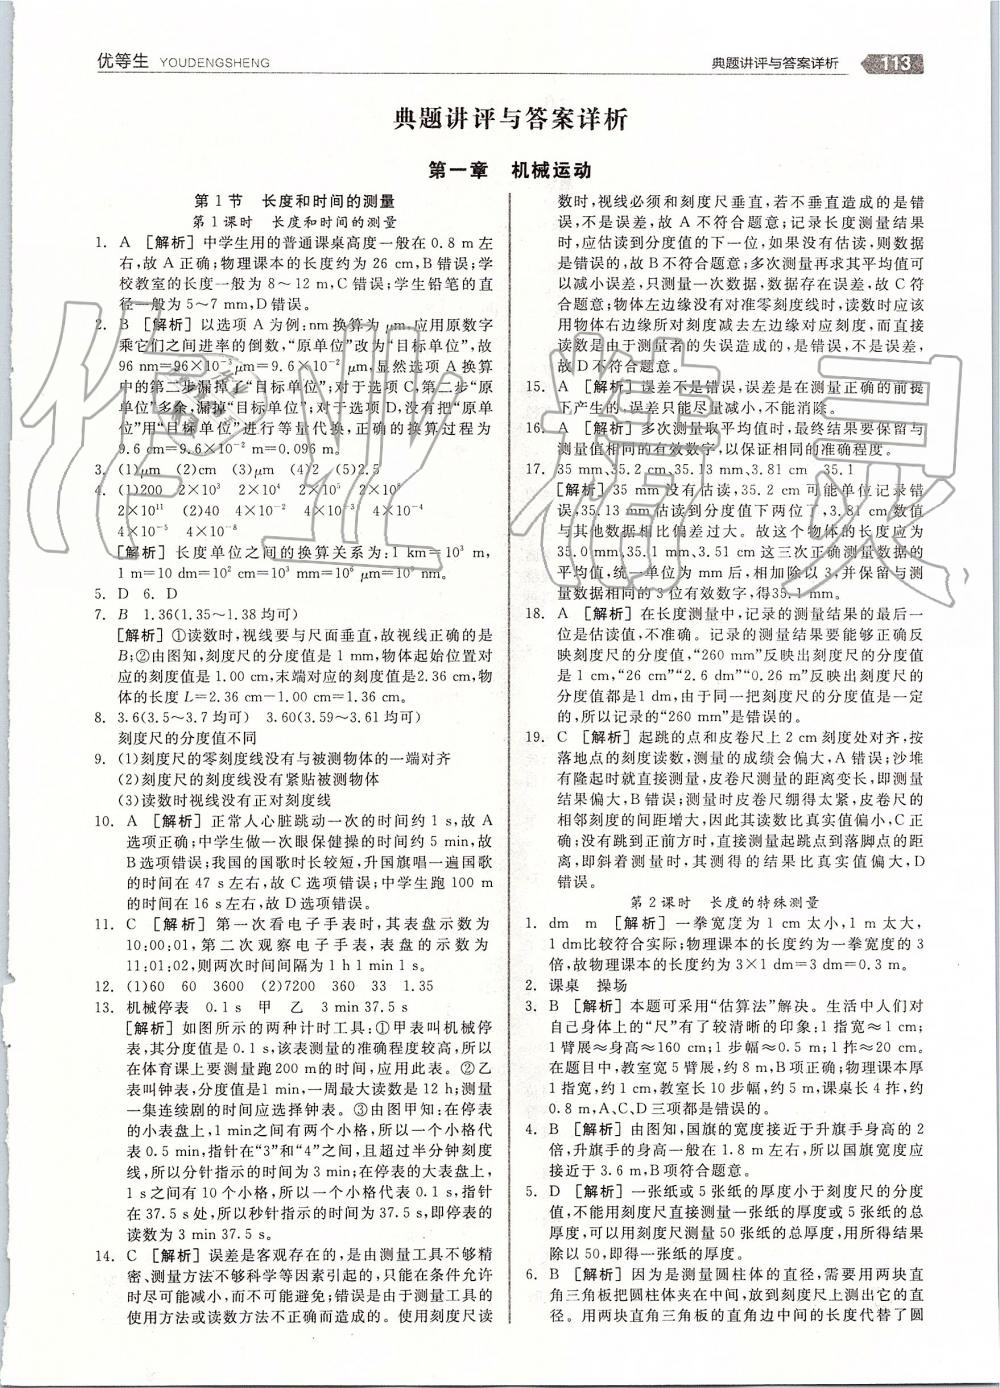 优等生 YOUDENGSHENG
典题讲评与答案详析 113
典题讲评与答案详析
第一章 机械运动
第1节 长度和时间的测量
第1课时 长度和时间的测量
1. A [解析]中学生用的普通课桌高度一般在0.8 m左
右,故A正确;物理课本的长度约为26 cm,B错误;学
校教室的长度一般为8～12 m,C错误;学生铅笔的直
径一般为5～7 mm,D错误。
2. B [解析]以选项A为例:nm换算为μm,应用原数字
乘它们之间进率的倒数,“原单位”改为“目标单位”,故
96 nm=96×10⁻³ μm=9.6×10⁻² μm,显然选项A换算
中的第二步漏掉了“目标单位”;对于选项C,第二步“原
单位”多余,漏掉“目标单位”;对于选项D,没有把“原单
位”用“目标单位”进行等量代换,正确的换算过程为
9.6 cm=9.6×10⁻² m=0.096 m。
3. (1)μm (2)cm (3)μm (4)2 (5)2.5
4. (1)200 2×10³ 2×10⁴ 2×10⁵ 2×10⁸
2×10¹¹ (2)40 4×10⁻² 4×10⁻³ 4×10⁻⁴
4×10⁻⁵ 4×10⁻⁸
[解析]长度单位之间的换算关系为:1 km=10³ m,
1 m=10 dm=10² cm=10³ mm=10⁶ μm=10⁹ nm。
5. D 6. D
7. B 1.36(1.35～1.38均可)
[解析]①读数时,视线要与尺面垂直,故视线正确的是
B;②由图知,刻度尺的分度值是1 mm,物体起始位置对
应的刻度值是1.00 cm,末端对应的刻度值是2.36 cm,物
体的长度L=2.36 cm-1.00 cm=1.36 cm。
8. 3.6(3.5～3.7均可) 3.60(3.59～3.61均可)
刻度尺的分度值不同
9. (1)刻度尺的零刻度线没有与被测物体的一端对齐
(2)刻度尺的刻度线没有紧贴被测物体
(3)读数时视线没有正对刻度线
10. A [解析]正常人心脏跳动一次的时间约1 s,故A
选项正确;中学生做一次眼保健操的时间约5 min,故
B选项错误;我国的国歌时长较短,升国旗唱一遍国歌
的时间在47 s左右,故C选项错误;中学生跑100 m
的时间在16 s左右,故D选项错误。
11. C [解析]第一次看电子手表时,其表盘示数为
10:00:01,第二次观察电子手表,表盘的示数为
11:01:02,则两次时间间隔为1 h 1 min 1 s。
12. (1)60 60 3600 (2)7200 360 33 1.35
13. 机械停表 0.1 s 甲 乙 3 min 37.5 s
[解析]如图所示的两种计时工具:①甲表叫机械停
表,其分度值是0.1 s,该表测量的准确程度较高,所以
在体育课上要测量跑200 m的时间,应用此表。②乙
表叫钟表,分度值是1 min,一周最大读数是12 h;测量
一集连续剧的时间应选择钟表。③由图甲知:在停表
的小表盘上,1 min之间有两个小格,所以一个小格代
表0.5 min,指针在“3”和“4”之间,且超过半分钟刻度
线,所以分针指示的时间为3 min;在停表的大表盘上,
1 s之间有10个小格,所以一个小格代表0.1 s,指针
在37.5 s处,所以秒针指示的时间为37.5 s,即停表的
读数为3 min 37.5 s。
14. C [解析]误差是客观存在的,是由测量工具不够精
密、测量方法不够科学等因素引起的,只能在条件允许
时尽可能减小,而不可能避免;错误是由于测量工具的
使用方法或读数方法不正确而造成的。使用刻度尺读
数时,视线必须和刻度尺垂直,若不垂直造成的是错
误,不是误差,故A不符合题意;记录长度测量结果
时,应估读到分度值的下一位,如果没有估读,则数据
是错误的,故B不符合题意;多次测量再求其平均值可
以减小误差,只测量一次数据,数据存在误差,故C符
合题意;物体左边缘没有对准零刻度线时,读数时应该
用物体右边缘所对刻度减去左边缘对应刻度,而直接
读数是由于测量者的失误造成的,是错误,不是误差,
故D不符合题意。
15. A [解析]误差不是错误,误差是在测量正确的前提
下产生的,误差只能尽量减小,不能消除。
16. A [解析]多次测量取平均值时,最终结果要保留与
测量值相同的有效数字,以保证相同的准确程度。
17. 35 mm、35.2 cm、35.13 mm、3.81 cm 35.1
[解析]35 mm没有估读,35.2 cm可能单位记录错
误,35.13 mm估读到分度值下两位了,3.81 cm数值
与其他数据相比偏差过大。故这个物体的长度应为
35.0 mm、35.1 mm、3.51 cm这三次正确测量数据的
平均值,统一单位为mm后,相加除以3,并保留与测
量数据相同的位有效数字,得35.1 mm。
18. A [解析]在长度测量中,记录的测量结果的最后一
位是估读值,不准确。记录的测量结果要能够正确反
映刻度尺的分度值,“260 mm”反映出刻度尺的分度值
是1 cm,“26 cm”“2.6 dm”“0.26 m”反映出刻度尺的
分度值都是1 dm,由于同一把刻度尺的分度值是一定
的,所以记录的“260 mm”是错误的。
19. C [解析]起跳的点和皮卷尺上2 cm刻度处对齐,按
落地点的刻度读数,测量的成绩会偏大,A错误;沙堆
有隆起时就直接测量,皮卷尺测量的距离变长,即测量
结果偏大,B错误;测量时皮卷尺绷得太紧,皮卷尺的
相邻刻度的间距增大,因此其读数比真实值偏小,C正
确;没有跳到正前方时,直接测量起跳点到落脚点的距
离,即斜着测量时,其测得的结果比真实值偏大,D
错误。
第2课时 长度的特殊测量
1. dm m [解析]一拳宽度为1 cm太小,1 m太大,
1 dm比较符合实际;物理课本的长度约为一拳宽度的3
倍,故物理课本的长度约为3×1 dm=3 dm=0.3 m。
2. 课桌 操场
3. B [解析]本题可采用“估算法”解决。生活中人们对
自己身体上的“尺”有了较清晰的印象:1指宽≈1 cm;
1臂展≈身高≈160 cm;1步幅≈0.5 m;1拃≈20 cm。
在题目中,教室宽5臂展,约8 m,B项正确;物理课本厚
1指宽,约1 cm,教室长10步幅,约5 m,课桌长4拃,约
0.8 m,A、C、D三项都是错误的。
4. B [解析]由图知,国旗的宽度接近于升旗手身高的2
倍,升旗手的身高一般在1.8 m左右,所以国旗宽度应
接近于3.6 m,B项符合题意。
5. D [解析]一张纸或5张纸的厚度小于刻度尺的分度
值,不能用刻度尺直接测量一张纸的厚度或5张纸的总
厚度,可以用刻度尺测量50张纸的总厚度,用所得结果
除以50,即得一张纸的厚度。
6. B [解析]因为是测量圆柱体的直径,需要用两块直
角三角板把圆柱体夹在中间,放到刻度尺上测出它的直
径。用两块直角三角板的直角边中间的长度代替了圆
作业精灵